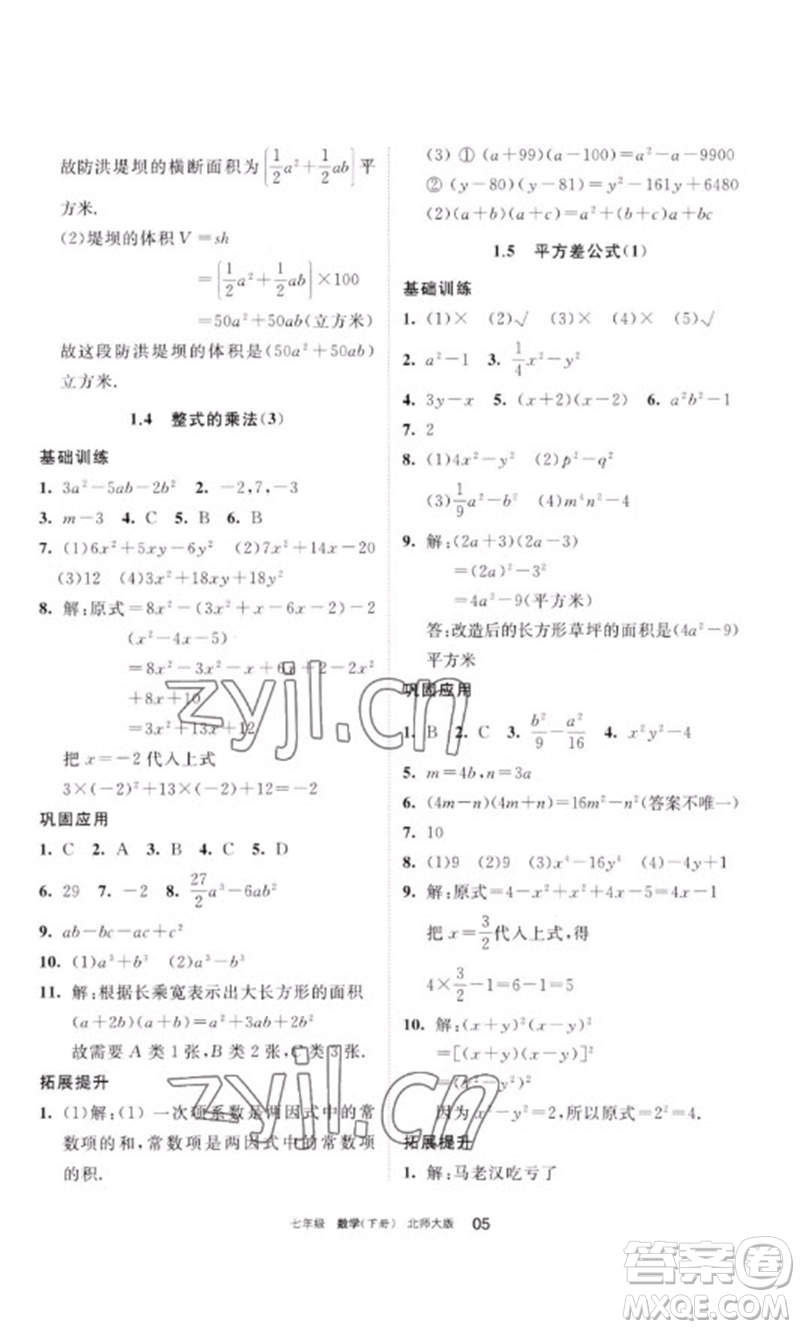 故防洪堤坝的横断面积为[1/2a²+1/2ab]平
方米.
(2)堤坝的体积V=sh
=[1/2a²+1/2ab]×100
=50a²+50ab(立方米)
故这段防洪堤坝的体积是(50a²+50ab)
立方米.
1.4 整式的乘法(3)
基础训练
1. 3a²-5ab-2b² 2. -2,7,-3
3. m-3 4. C 5. B 6. B
7. (1)6x²+5xy-6y² (2)7x²+14x-20
(3)12 (4)3x²+18xy+18y²
8. 解:原式=8x²-(3x²+x-6x-2)-2
(x²-4x-5)
=8x²-3x²-x+6x+2-2x²
+8x+10
=3x²+13x+12
把x=-2代入上式
3×(-2)²+13×(-2)+12=-2
巩固应用
1. C 2. A 3. B 4. C 5. D
6. 29 7. -2 8. 27/2a³-6ab²
9. ab-bc-ac+c²
10. (1)a³+b³ (2)a³-b³
11. 解:根据长乘宽表示出大长方形的面积
(a+2b)(a+b)=a²+3ab+2b²
故需要A类1张,B类2张,C类3张.
拓展提升
1. (1)解:(1) 一次项系数是两因式中的常
数项的和,常数项是两因式中的常数项
的积.
(3) ① (a+99)(a-100)=a²-a-9900
② (y-80)(y-81)=y²-161y+6480
(2)(a+b)(a+c)=a²+(b+c)a+bc
1.5 平方差公式(1)
基础训练
1. (1)× (2)√ (3)× (4)× (5)√
2. a²-1 3. 1/4x²-y²
4. 3y-x 5. (x+2)(x-2) 6. a²b²-1
7. 2
8. (1)4x²-y² (2)p²-q²
(3)1/9a²-b² (4)m⁴n²-4
9. 解:(2a+3)(2a-3)
=(2a)²-3²
=4a²-9(平方米)
答:改造后的长方形草坪的面积是(4a²-9)
平方米
巩固应用
1. B 2. C 3. b²/9-a²/16 4. x²y²-4
5. m=4b,n=3a
6. (4m-n)(4m+n)=16m²-n²(答案不唯一)
7. 10
8. (1)9 (2)9 (3)x⁴-16y⁴ (4)-4y+1
9. 解:原式=4-x²+x²+4x-5=4x-1
把x=3/2代入上式,得
4×3/2-1=6-1=5
10. 解:(x+y)²(x-y)²
=[(x+y)(x-y)]²
=(x²-y²)²
因为x²-y²=2,所以原式=2²=4.
拓展提升
1. 解:马老汉吃亏了
七年级 数学(下册) 北师大版 05
zyjl.cn
zyjl.cn
答案卷
MXQE.COM